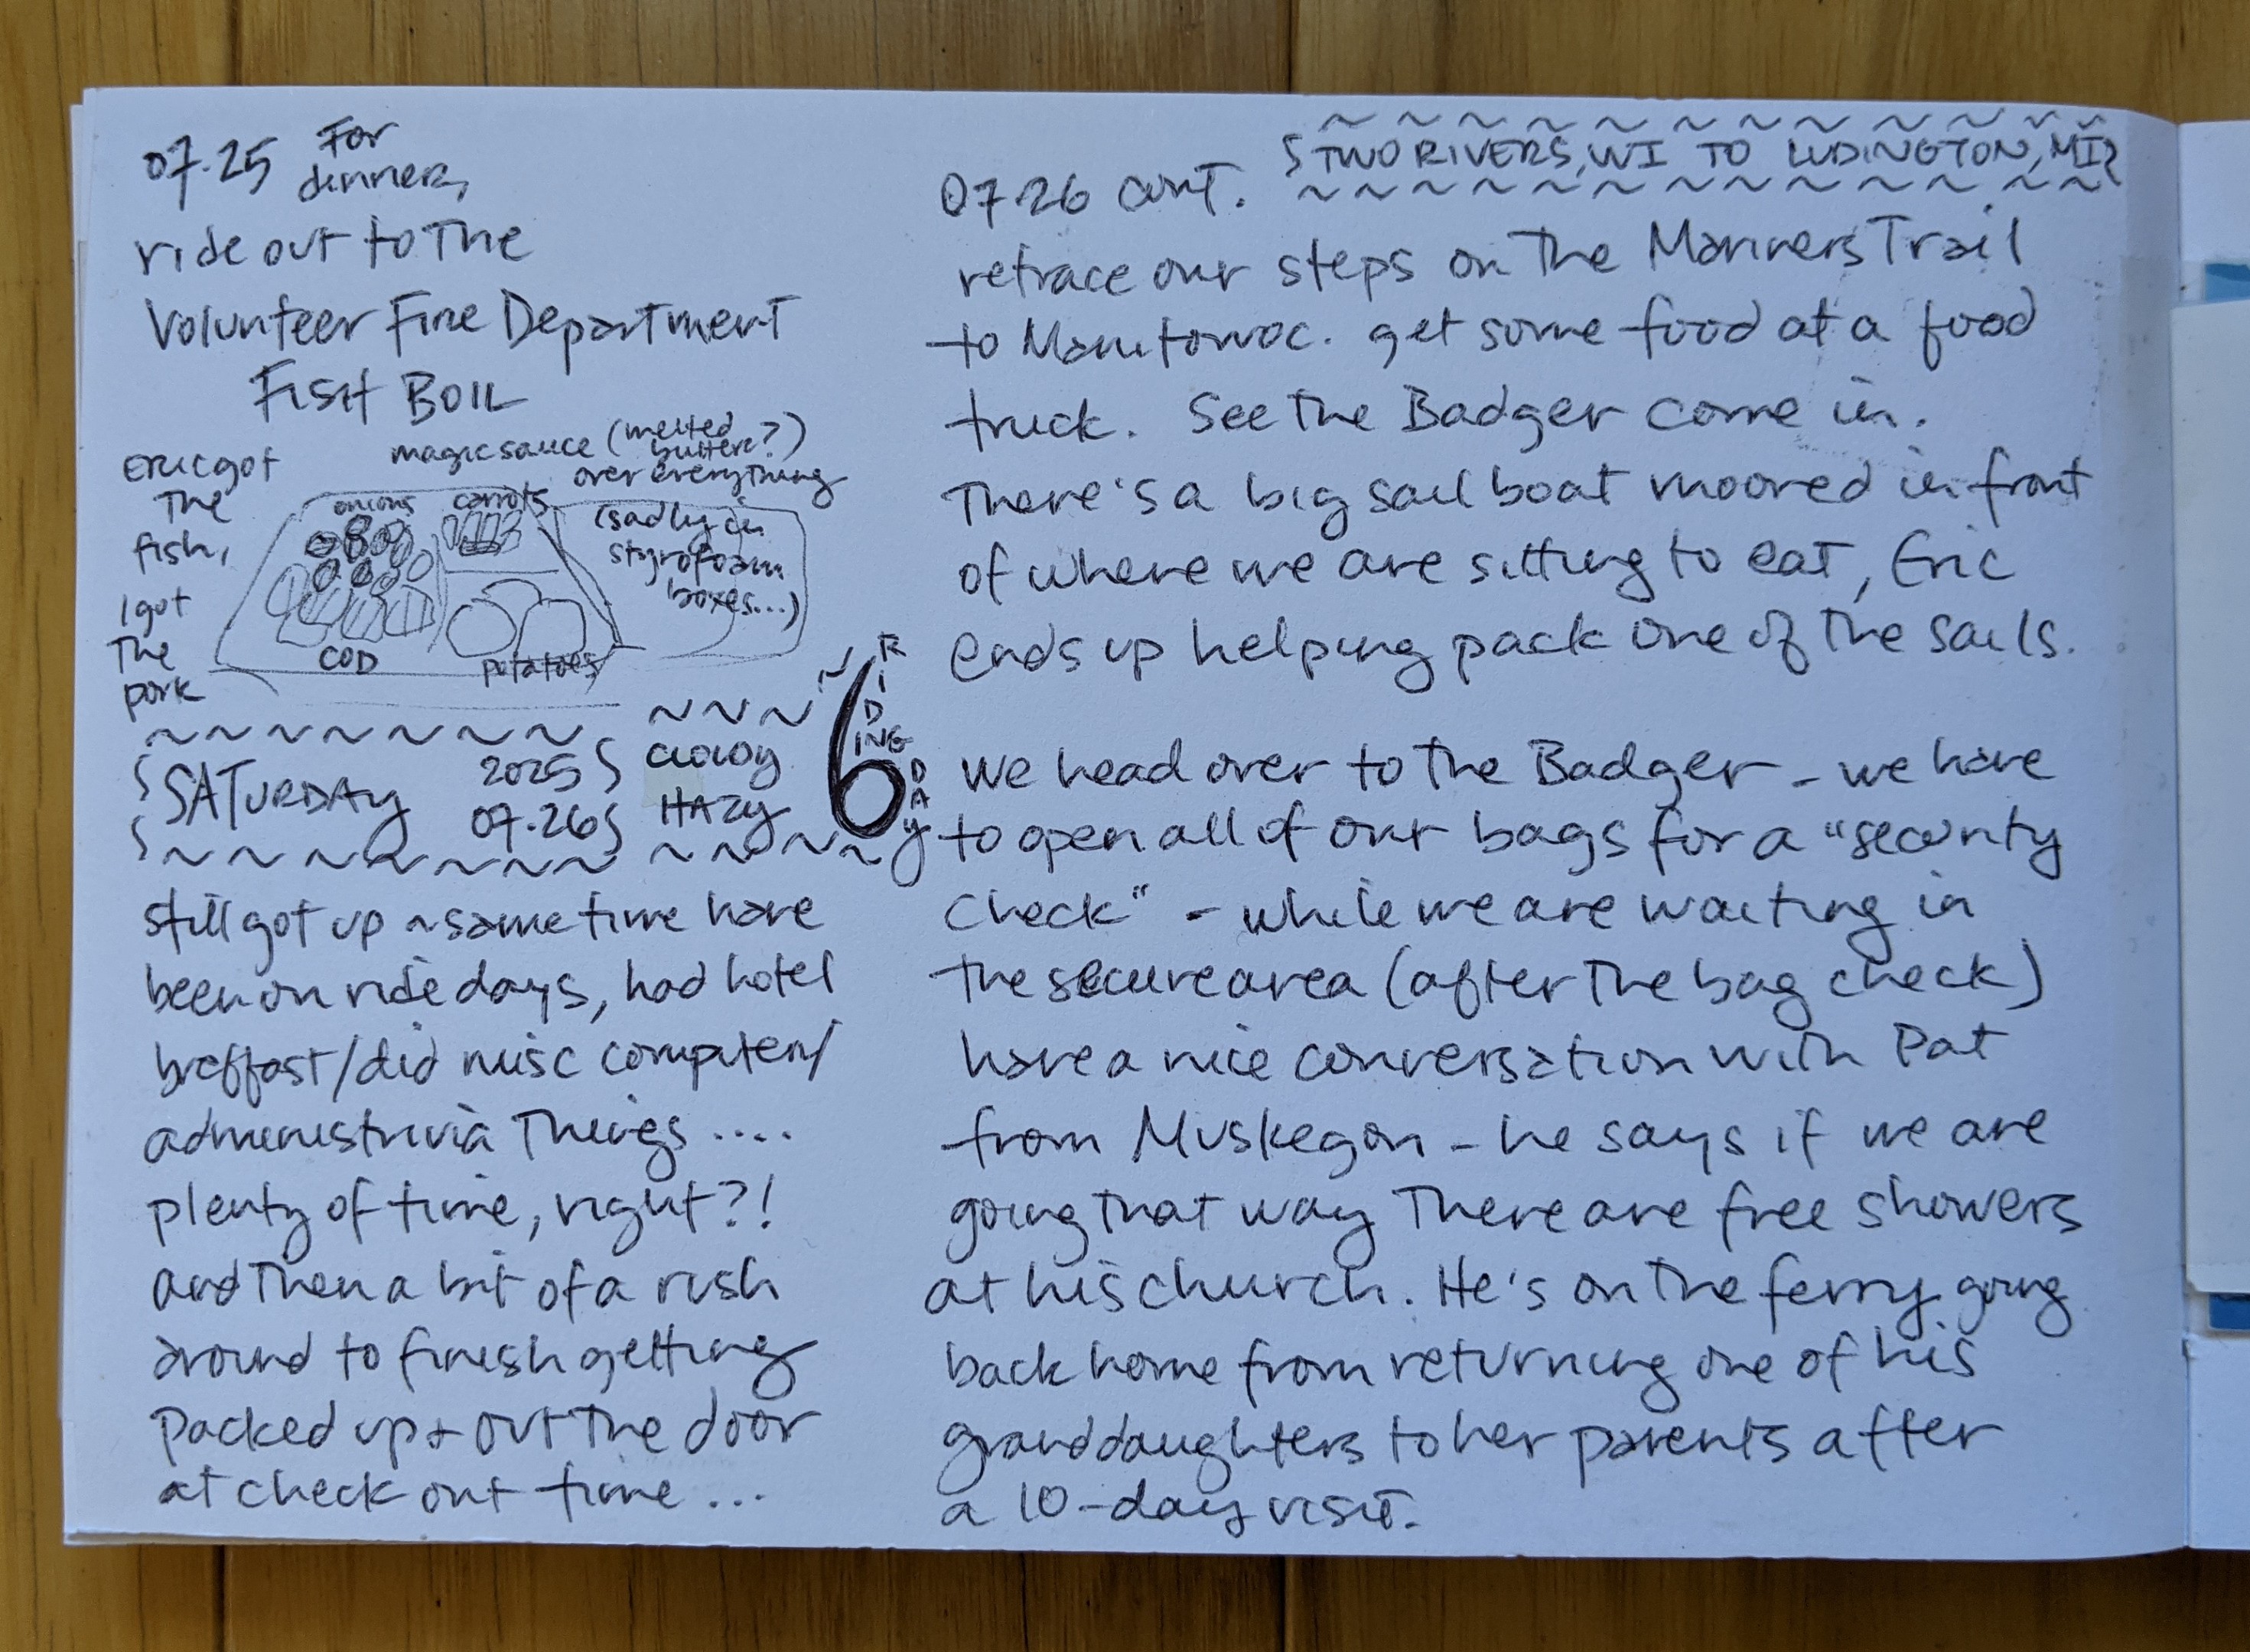 07.25 For
dinner,
ride out to the
Volunteer Fire Department
FISH BOIL
Eric got
the
fish,
I got
the
pork
magic sauce (melted
butter?)
over everything
(sadly in
styrofoam
boxes...)
onions
carrots
COD
potatoes
SATURDAY
2025
07.26
CLOUDY
HAZY
6
RIDING
DAY
still got up ~ same time have
been on ride days, had hotel
breffast/did misc computer/
administrivia things ....
plenty of time, right?!
and then a bit of a rush
around to finish getting
packed up + out the door
at check out time ...
07.26 cont.
TWO RIVERS, WI TO LUDINGTON, MI
retrace our steps on the Mariners Trail
to Manitowoc. get some food at a food
truck. See the Badger come in.
There's a big sail boat moored in front
of where we are sitting to eat, Eric
ends up helping pack one of the sails.
We head over to the Badger - we have
to open all of our bags for a "security
check" - while we are waiting in
the secure area (after the bag check)
have a nice conversation with Pat
from Muskegon - he says if we are
going that way there are free showers
at his church. He's on the ferry going
back home from returning one of his
granddaughters to her parents after
a 10-day visit.